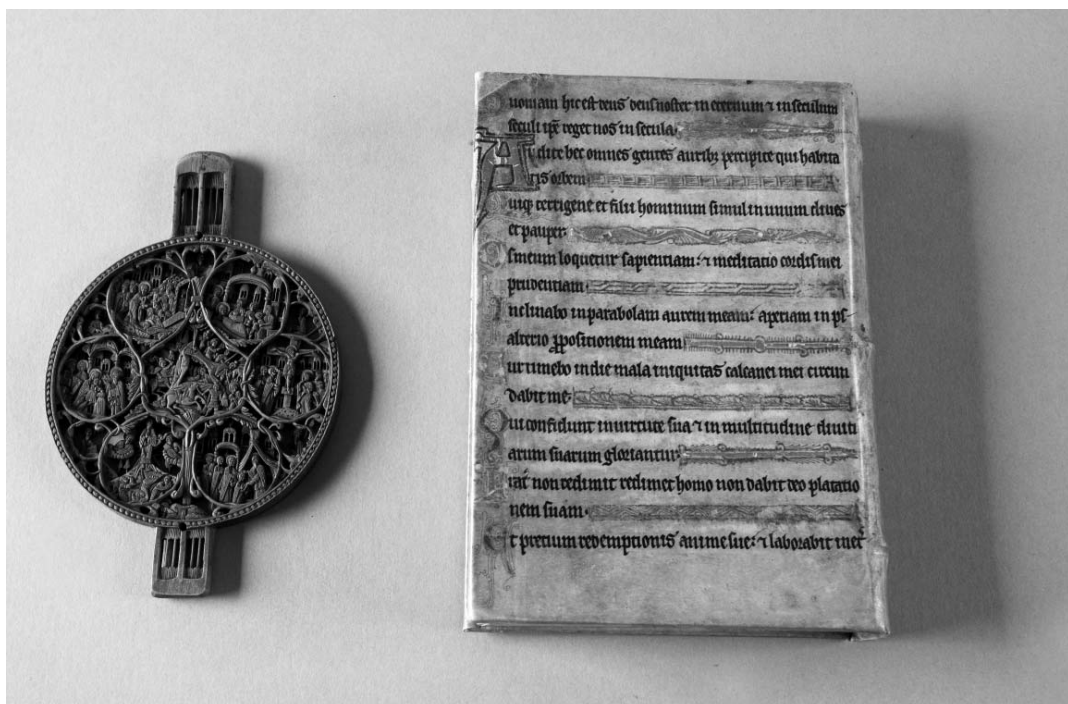 Quoniam hic est deus deus noster in eternum ⁊ in seculum
seculi ip̄e reget nos in secula.
Audite hec omnes gentes aurib; percipite qui habita
tis orbem.
Quiq; terrigene et filii hominum simul in unum diues
et pauper.
Os meum loquetur sapientiam: ⁊ meditatio cordis mei
prudentiam.
Inclinabo in parabolam aurem meam: aperiam in ps
alterio p̄positionem meam.
ur timebo in die mala iniquitas calcanei mei circun
dabit me.
Qui confidunt in uirtute sua ⁊ in multitudine diuiti
arum suarum gloriantur.
Frat̄ non redimit redimet homo non dabit deo placatio
nem suam.
Et precium redemptionis anime sue: ⁊ laborabit in et̄